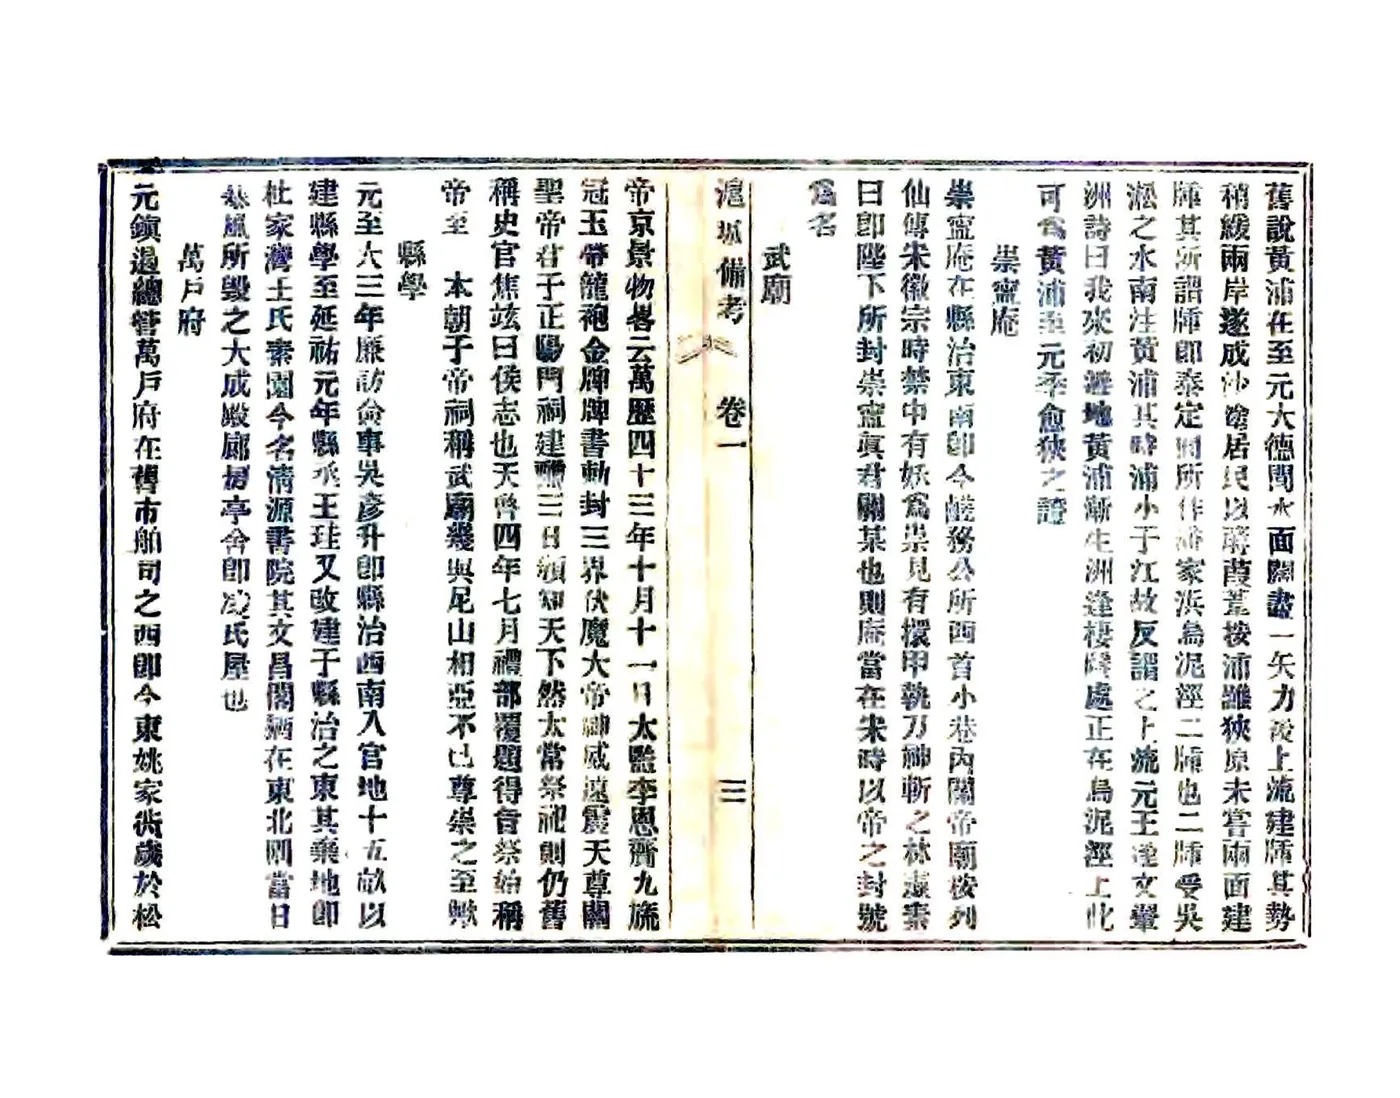 舊說黃浦在至元大德間水面闊盡一矢力後上流建牐其勢
稍緩兩岸遂成沙塗居民以蒔葭葦按浦雖狹原未嘗兩面建
牐其所謂牐卽泰定間所作潘家浜烏泥涇二牐也二牐受吳
淞之水南注黃浦其時浦小于江故反謂之上流元王逢文輩
洲詩曰我來初避地黃浦漸生洲逢棲隱處正在烏泥涇上此
可爲黃浦至元季愈狹之證
崇寧庵
崇寧庵在縣治東南卽今鹺務公所西首小巷內關帝廟按列
仙傳宋徽宗時禁中有妖爲祟見有擐甲執刀神斬之林靈素
曰卽陛下所封崇寧眞君關某也則庵當在宋時以帝之封號
爲名
武廟
滬城備考 卷一 三
帝京景物畧云萬歷四十三年十月十一日太監李恩齎九旒
冠玉帶龍袍金牌牌書勅封三界伏魔大帝神威遠震天尊關
聖帝君于正陽門祠建醮三日頒知天下然太常祭祀則仍舊
稱史官焦竑曰侯志也天啓四年七月禮部覆題得旨祭始稱
帝至 本朝于帝祠稱武廟幾與尼山相亞不已尊崇之至歟
縣學
元至大三年廉訪僉事吳彥升卽縣治西南入官地十五畝以
建縣學至延祐元年縣丞王珪又改建于縣治之東其藥地卽
杜家灣王氏素園今名清源書院其文昌閣猶在東北則當日
風所毀之大成殿廊房亭舍卽凌氏屋也
萬戶府
元鎭遏總管萬戶府在舊市舶司之西卽今東姚家衖歲於松